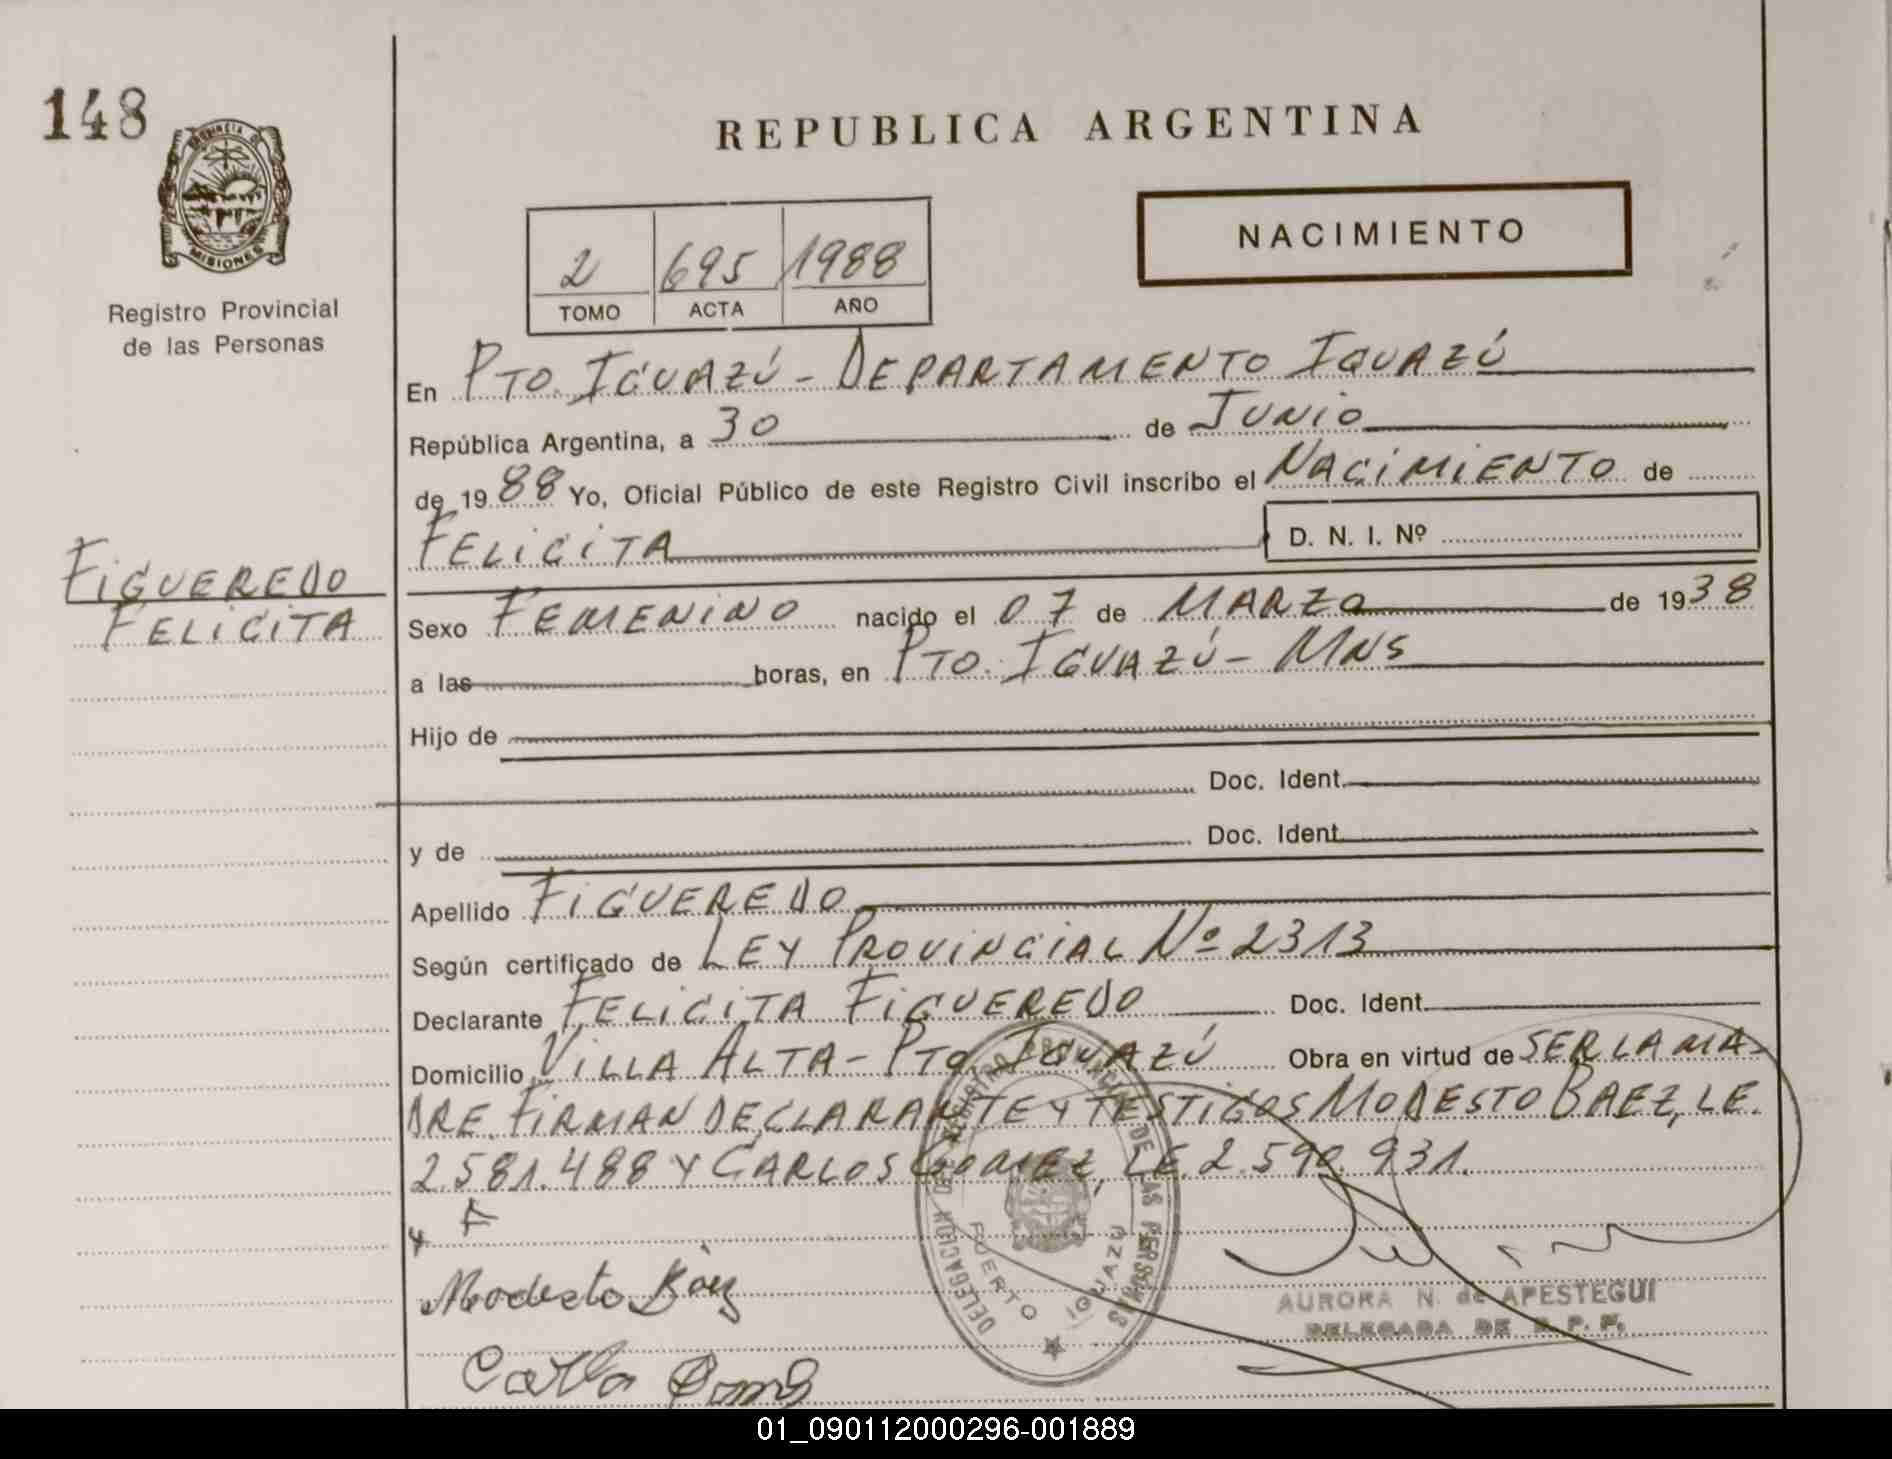 148
PROVINCIA DE
MISIONES
Registro Provincial
de las Personas
REPUBLICA ARGENTINA
2 695 1988
TOMO ACTA AÑO
NACIMIENTO
En PTO. IGUAZÚ - DEPARTAMENTO IGUAZÚ
República Argentina, a 30 de JUNIO
de 1988 Yo, Oficial Público de este Registro Civil inscribo el NACIMIENTO de
FELICITA D. N. I. Nº
FIGUEREDO
FELICITA
Sexo FEMENINO nacido el 07 de MARZO de 1938
a las horas, en PTO. IGUAZÚ - MNS
Hijo de
Doc. Ident.
y de Doc. Ident.
Apellido FIGUEREDO
Según certificado de LEY PROVINCIAL Nº 2313
Declarante FELICITA FIGUEREDO Doc. Ident.
Domicilio VILLA ALTA - PTO. IGUAZÚ Obra en virtud de SER LA MA-
DRE. FIRMAN DECLARANTE Y TESTIGOS MODESTO BAEZ, LE.
2.581.488 Y CARLOS GOMEZ, LE 2.590.931.
F
Modesto Báez
DELEGACION DEL REGISTRO PROVINCIAL DE LAS PERSONAS
PUERTO IGUAZU
AURORA N. de APESTEGUI
DELEGADA DE R. P. P.
01_090112000296-001889